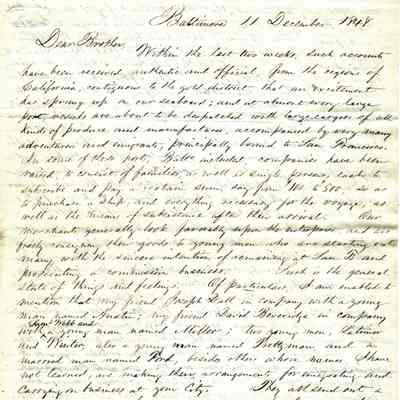 Baltimore 11 December 1848
Dear Brother,
Within the last two weeks, such accounts
have been received, authentic and official, from the regions of
California, contiguous to the gold district that an excitement
has sprung up on our seaboard; and at almost every large
port, vessels are about to be despatched with large cargoes of all
kinds of produce and manufactures, accompanied by very many
adventurers and emigrants, principally bound to San Francisco.
In some of these ports, Balto included, companies have been
raised, to consist of families as well as single persons, each to
subscribe and pay a certain sum, say from 100 to 500, so as
to purchase a ship, and everything necessary for the voyage, as
well as the means of subsistence after their arrival. Our
merchants generally look favorably upon the enterprise and are
freely consigning their goods to young men who are starting out
many with the sincere intention of remaining at San F. and
prosecuting a commission business. Such is the general
state of things and feelings. Of particulars, I am enabled to
mention that my friend Joseph Hall in company with a young
man named Austin; my friend David Beveridge in company
Saml Webb and
with a young man named Miller; two young men, Latimer
and Winter, also a young man named and a
married man named Ford, besides others whose names I have
not learned, are making their arrangements for emigrating and
carrying on business at your City. They all send out a